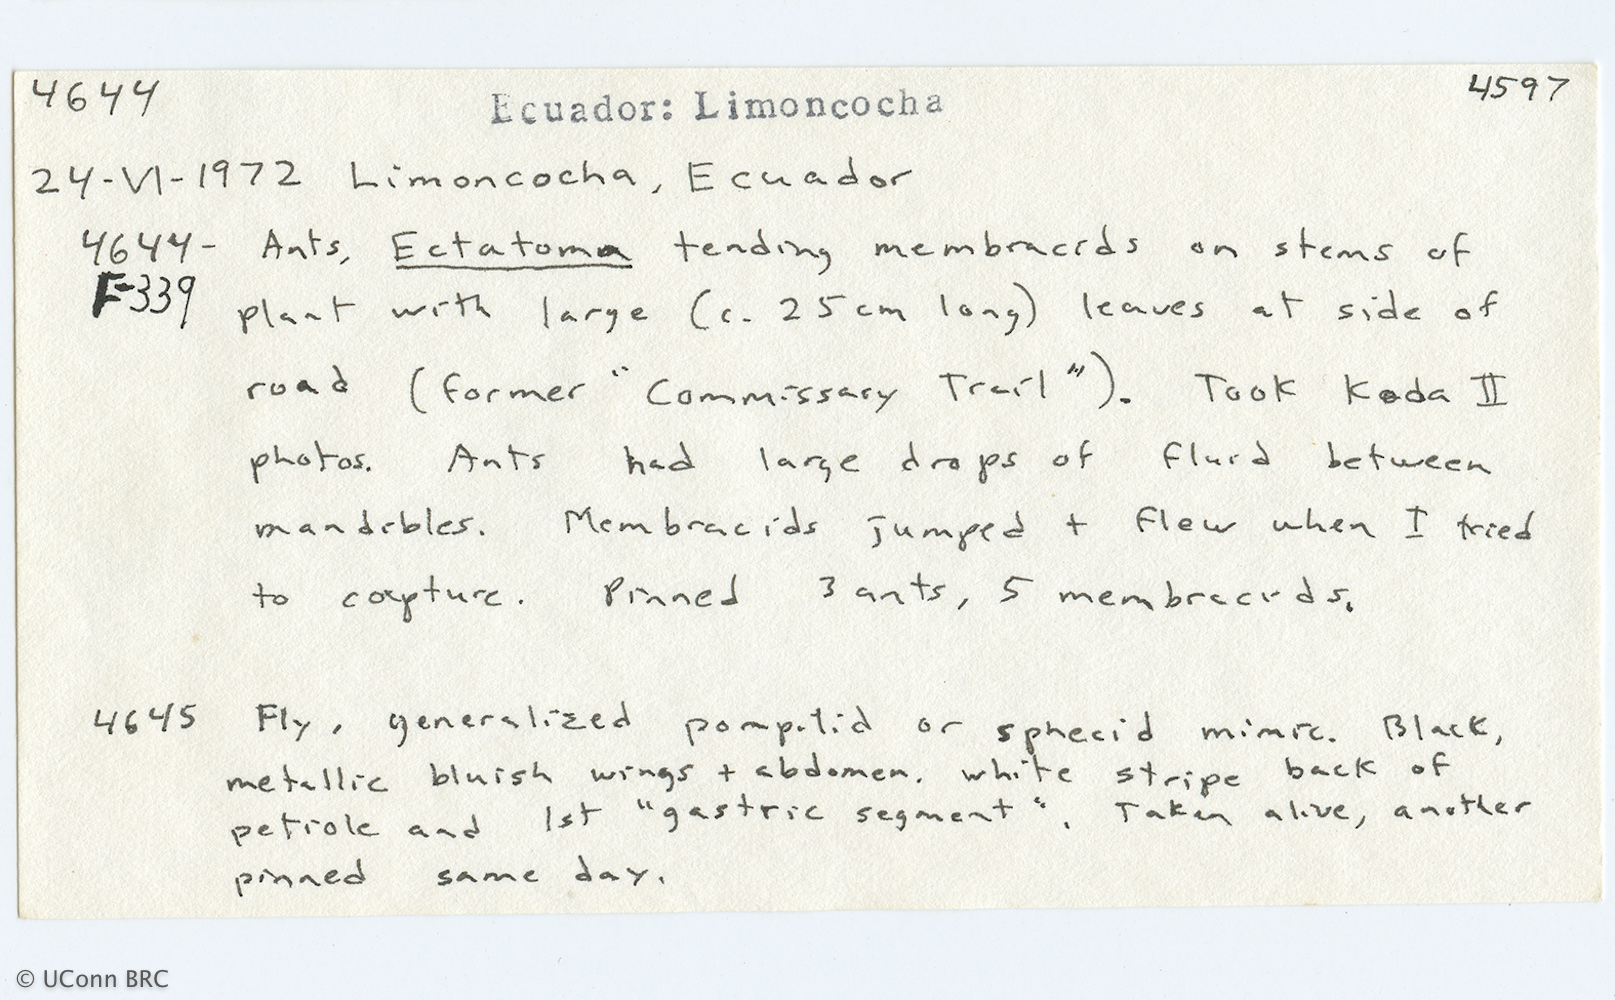 4644 Ecuador: Limoncocha 4597
24-VI-1972 Limoncocha, Ecuador
4644- Ants, Ectatoma tending membracids on stems of
F-339 plant with large (c. 25cm long) leaves at side of
road (former "Commissary Trail"). Took Koda II
photos. Ants had large drops of fluid between
mandibles. Membracids jumped + flew when I tried
to capture. Pinned 3 ants, 5 membracids.
4645 Fly, generalized pompilid or sphecid mimic. Black,
metallic bluish wings + abdomen. white stripe back of
petiole and 1st "gastric segment". Taken alive, another
pinned same day.
© UConn BRC